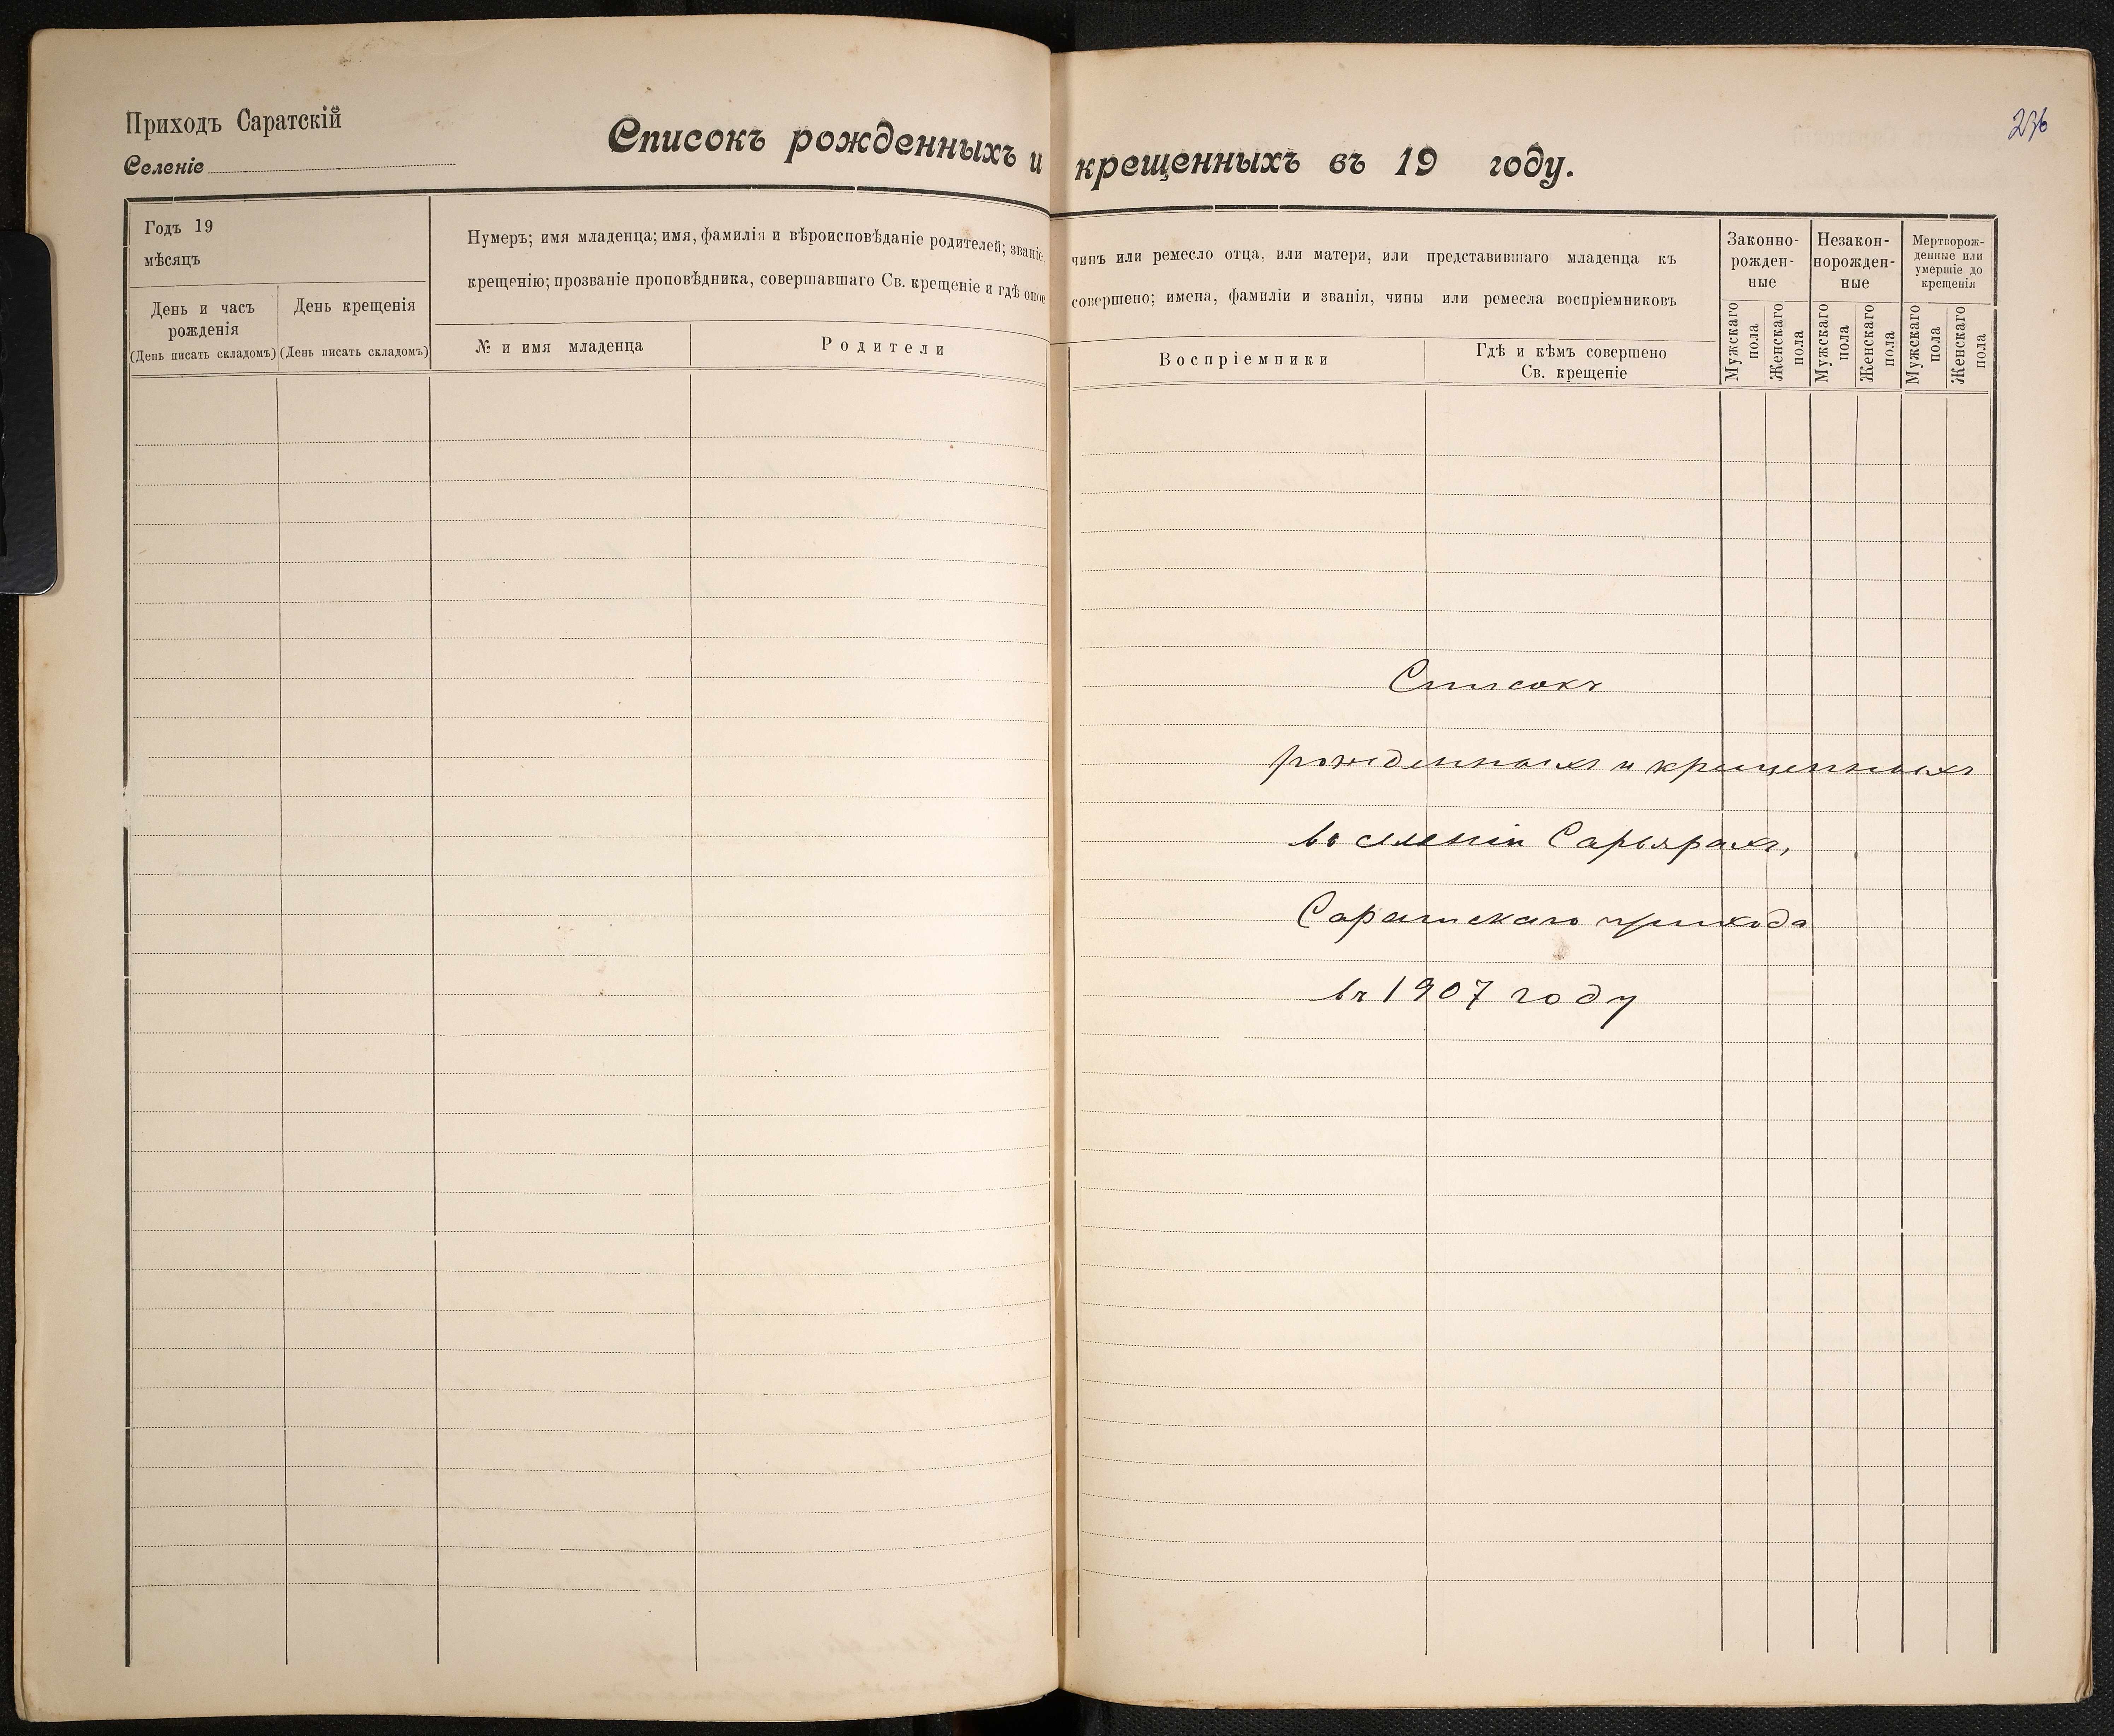 Приходъ Саратскій
Селеніе
Списокъ рожденныхъ и крещенныхъ въ 19 году.
Годъ 19
мѣсяцъ
День и часъ
рожденія
(День писать складомъ)
День крещенія
(День писать складомъ)
Нумеръ; имя младенца; имя, фамилія и вѣроисповѣданіе родителей; званіе,
крещенію; прозваніе проповѣдника, совершавшаго Св. крещеніе и гдѣ оное
№ и имя младенца
Родители
чинъ или ремесло отца, или матери, или представившаго младенца къ
совершено; имена, фамиліи и званія, чины или ремесла воспріемниковъ
Воспріемники
Гдѣ и кѣмъ совершено
Св. крещеніе
Законно-
рожден-
ные
Незакон-
норожден-
ные
Мертворож-
денные или
умершіе до
крещенія
Мужскаго
пола
Женскаго
пола
Мужскаго
пола
Женскаго
пола
Мужскаго
пола
Женскаго
пола
Списокъ
рожденныхъ и крещенныхъ
въ селеніи Сарьярахъ,
Саратскаго прихода
въ 1907 году